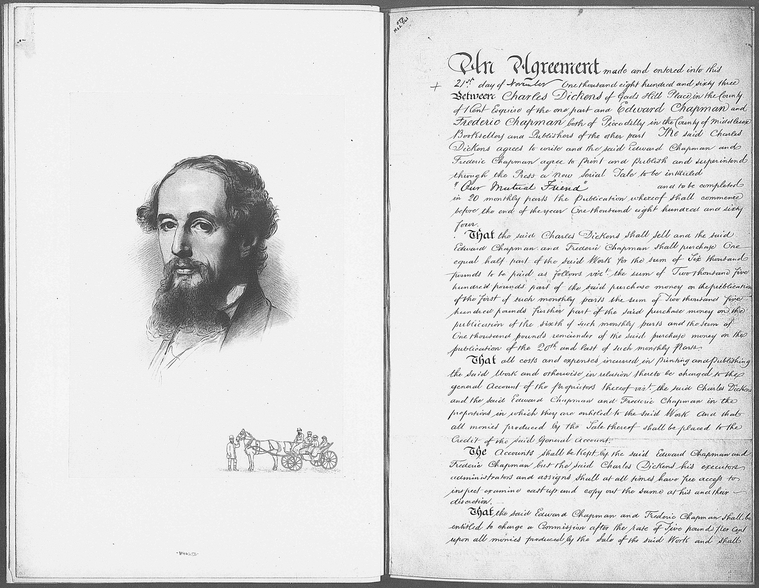 An Agreement made and entered into this
21st day of November One thousand eight hundred and sixty three
Between Charles Dickens of Gads Hill Place in the County
of Kent Esquire of the one part and Edward Chapman and
Frederic Chapman both of Piccadilly in the County of Middlesex
Booksellers and Publishers of the other part The said Charles
Dickens agrees to write and the said Edward Chapman and
Frederic Chapman agree to Print and Publish and superintend
through the Press a new Serial Tale to be intituled
"Our Mutual Friend" and to be completed
in 20 monthly parts the Publication whereof shall commence
before the end of the year One thousand eight hundred and sixty
four.
That the said Charles Dickens shall sell and the said
Edward Chapman and Frederic Chapman shall purchase One
equal half part of the said Work for the sum of Six thousand
pounds to be paid as follows vizt. the sum of Two thousand five
hundred pounds part of the said purchase money on the publication
of the first of such monthly parts the sum of Two thousand five
hundred pounds further part of the said purchase money on the
publication of the sixth of such monthly parts and the sum of
One thousand pounds remainder of the said purchase money on the
publication of the 20th and last of such monthly Parts.
That all costs and expenses incurred in printing and publishing
the said Work and otherwise in relation thereto be charged to the
general Account of the Proprietors thereof vizt. the said Charles Dickens
and the said Edward Chapman and Frederic Chapman in the
proportions in which they are entitled to the said Work and that
all monies produced by the Sale thereof shall be placed to the
Credit of the said General Account.
The Accounts shall be kept by the said Edward Chapman and
Frederic Chapman but the said Charles Dickens his executors
administrators and assigns shall at all times have free access to
inspect examine cast up and copy out the same at his and their
discretion.
That the said Edward Chapman and Frederic Chapman shall be
entitled to charge a Commission after the rate of Five pounds per Cent
upon all monies produced by the Sale of the said Work and shall